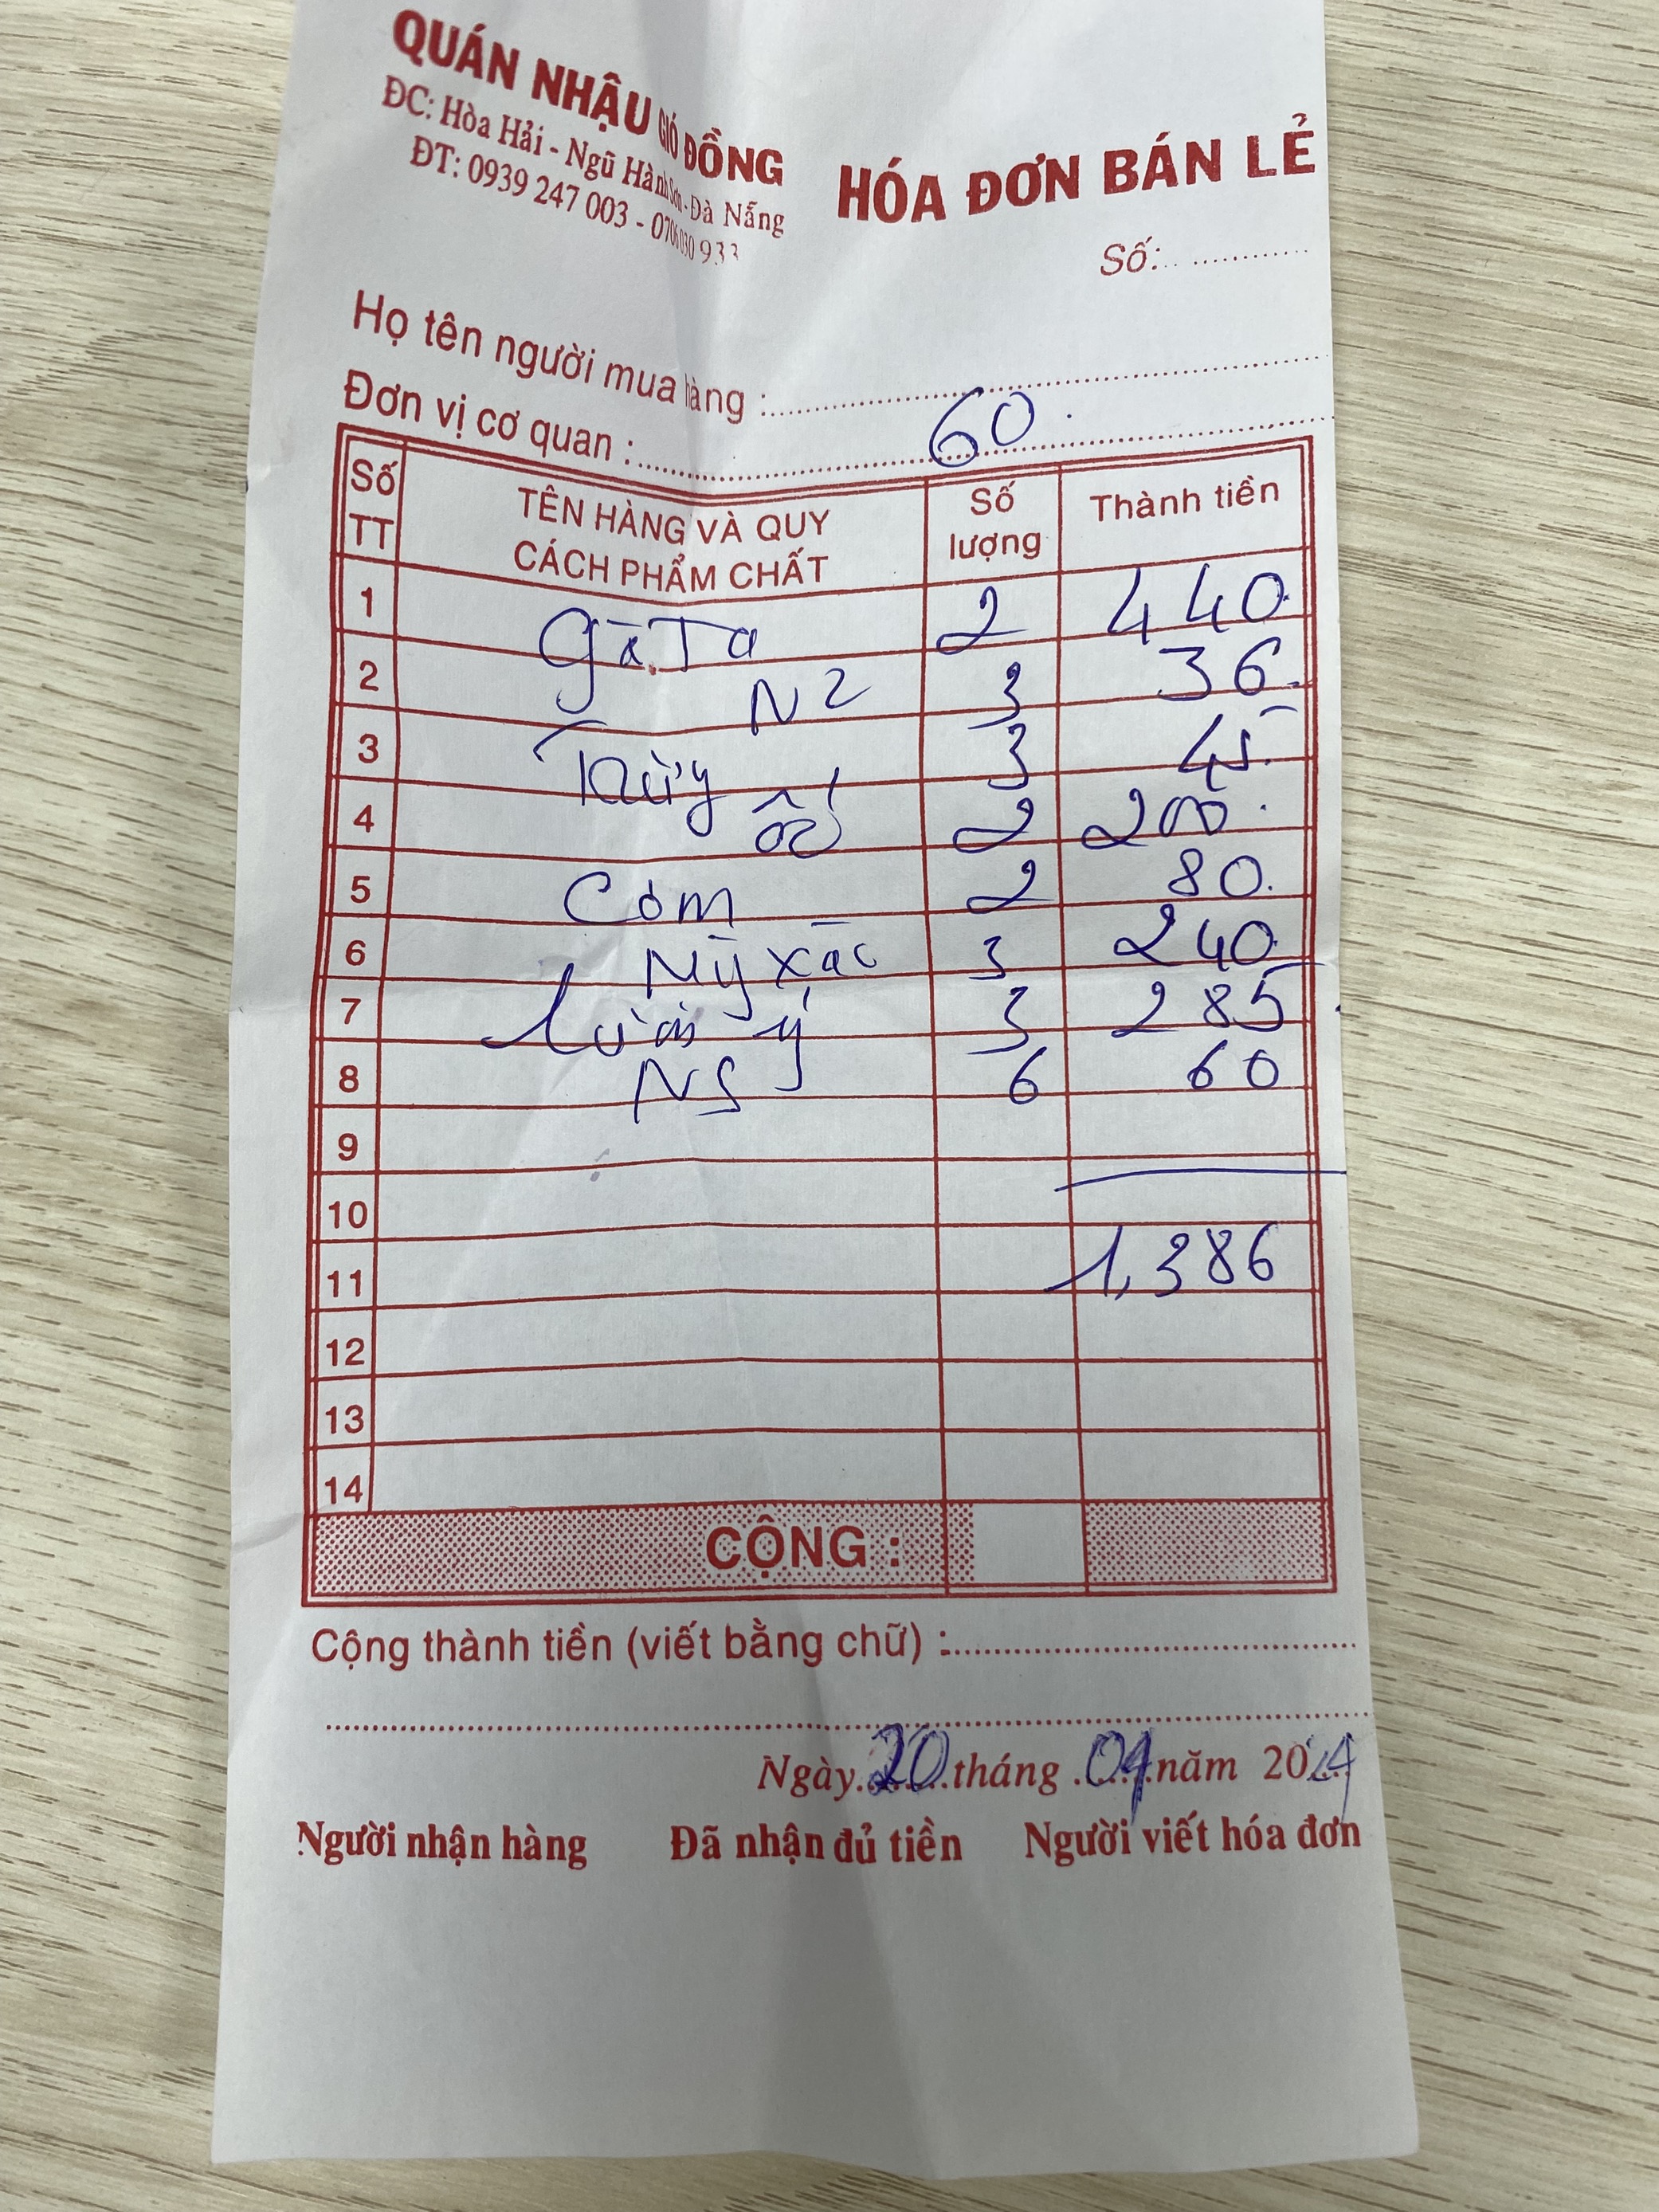 QUÁN NHẬU GIÓ ĐỒNG
ĐC: Hòa Hải - Ngũ Hành Sơn - Đà Nẵng
ĐT: 0939 247 003 - 0706 030 933
HÓA ĐƠN BÁN LẺ
Số:
Họ tên người mua hàng :
Đơn vị cơ quan : 60
Số TT TÊN HÀNG VÀ QUY CÁCH PHẨM CHẤT Số lượng Thành tiền
1 Gà Ta 2 440
2 N2 3 36
3 3 45
4 ốc 2 200
5 Cơm 2 80
6 Mỳ xào 3 240
7 3 285
8 NS 6 60
9
10
11 1,386
12
13
14
CỘNG :
Cộng thành tiền (viết bằng chữ) :
Ngày 20 tháng 04 năm 2024
Người nhận hàng Đã nhận đủ tiền Người viết hóa đơn